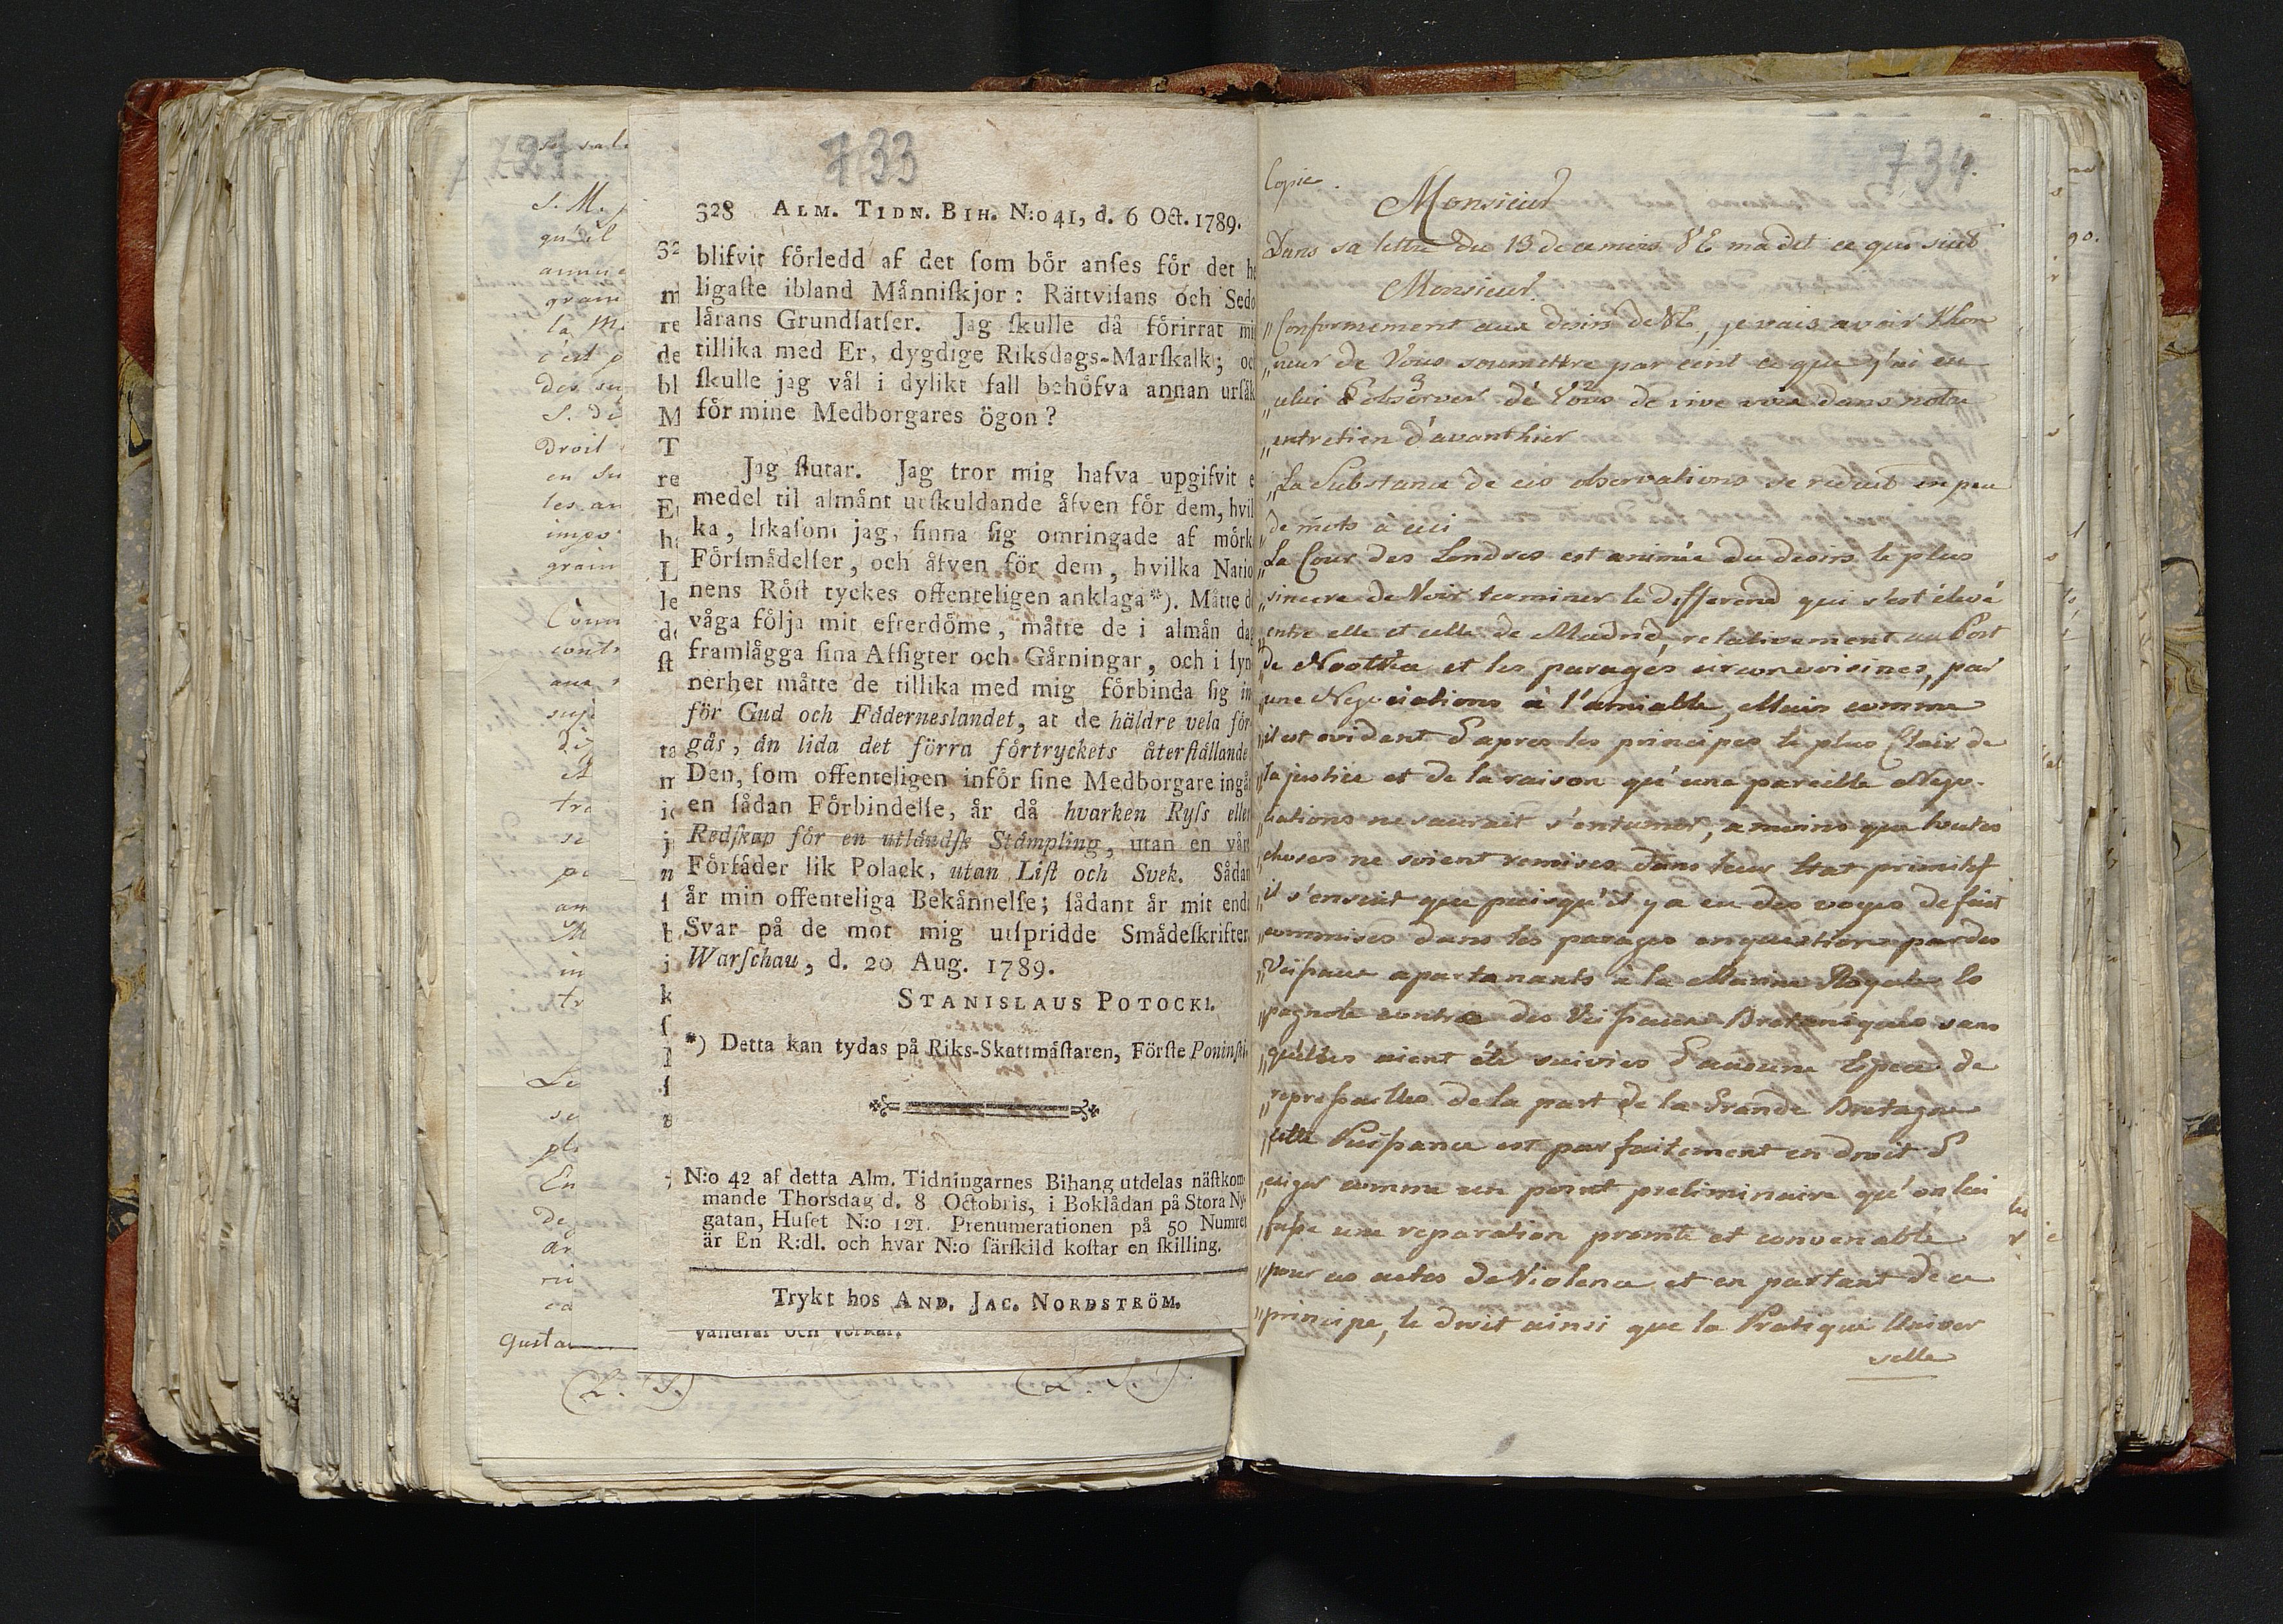 733
328 ALM. TIDN. BIH. N:o 41, d. 6 Oct. 1789.
blifvit förledd af det ſom bör anſes för det he
ligaſte ibland Månniſkjor: Rättviſans och Sedo
lärans Grundſatſer. Jag ſkulle då förirrat mig
tillika med Er, dygdige Riksdags-Marſkalk; och
ſkulle jag vål i dylikt fall behöfva annan urſåk
för mine Medborgares ögon?
Jag ſlutar. Jag tror mig hafva upgifvit e
medel til almånt utſkuldande åfven för dem, hvil
ka, likaſom jag, finna ſig omringade af mörk
Förſmådelſer, och åfven för dem, hvilka Natio
nens Röſt tyckes offenteligen anklaga*). Måtte d
våga följa mit efterdöme, måtte de i almån dag
framlågga ſina Afſigter och Gårningar, och i ſyn
nerhet måtte de tillika med mig förbinda ſig in
för Gud och Fåderneslandet, at de häldre vela för
gås, ån lida det förra förtryckets återſtållande
Den, ſom offenteligen inför ſine Medborgare ingå
en ſådan Förbindelſe, år då hvarken Ryſs eller
Redſkap för en utländſk Ståmpling, utan en vår
Förfåder lik Polack, utan Liſt och Svek. Sådan
år min offenteliga Bekånnelſe; ſådant år mit end
Svar på de mot mig utſpridde Smådeſkrifter
Warſchau, d. 20 Aug. 1789.
STANISLAUS POTOCKI.
*) Detta kan tydas på Riks-Skattmåſtaren, Förſte Poninſki
N:o 42 af detta Alm. Tidningarnes Bihang utdelas näſtkom
mande Thorsdag d. 8 Octobris, i Boklådan på Stora Ny
gatan, Huſet N:o 121. Prenumerationen på 50 Numrer
är En R:dl. och hvar N:o ſärſkild koſtar en ſkilling.
Trykt hos AND. JAC. NORDSTRÖM.
(L. S.) (L. S.)
734.
Copie.
Monsieur
Dans sa lettre du 13 de ce mois V E m'a dit ce qui suit
Monsieur
„Conformement aux desirs de V E, je vais avoir l'hon
„neur de Vous soumettre par ecrit ce que j'ai eu
„celui d'observer à Vous de vive voix dans notre
„entretien d'avanthier
„La Substance de ces observations se reduit en peu
„de mots à ceci
„La Cour des Londres est animée du desirs le plus
„sincere de Voir terminer le differend qui s'est élevé
„entre elle et celle de Madrid, relativement au Port
„de Nootka et les parages circonvoisines, par
„une Negociations à l'amiable, Mais comme
„il est evident d'apres les principes le plus Clair de
„la justice et de la raison qu'une pareille Nego-
„tiations ne saurait s'entamer, a moins que toutes
„choses ne soient remises dans leur Etat primitif
„il s'ensuit que puisqu'il y a eu des voyes de fait
„commises dans les parages en question par des
„Vaisseaux apartenants à la Marine Royale Es
„pagnole contre des Vaisseaux Britaniques sans
„qu'elles aient été suivies d'aucune Espece de
„represailles de la part de la Grande Bretagne
„cette Puissance est parfaitement en droit d
„exiger comme un point preliminaire qu'on lui
„fasse une reparation promte et convenable
„pour ces actes de Violence et en partant de ce
„principe, le droit ainsi que la Pratique Univer
selle